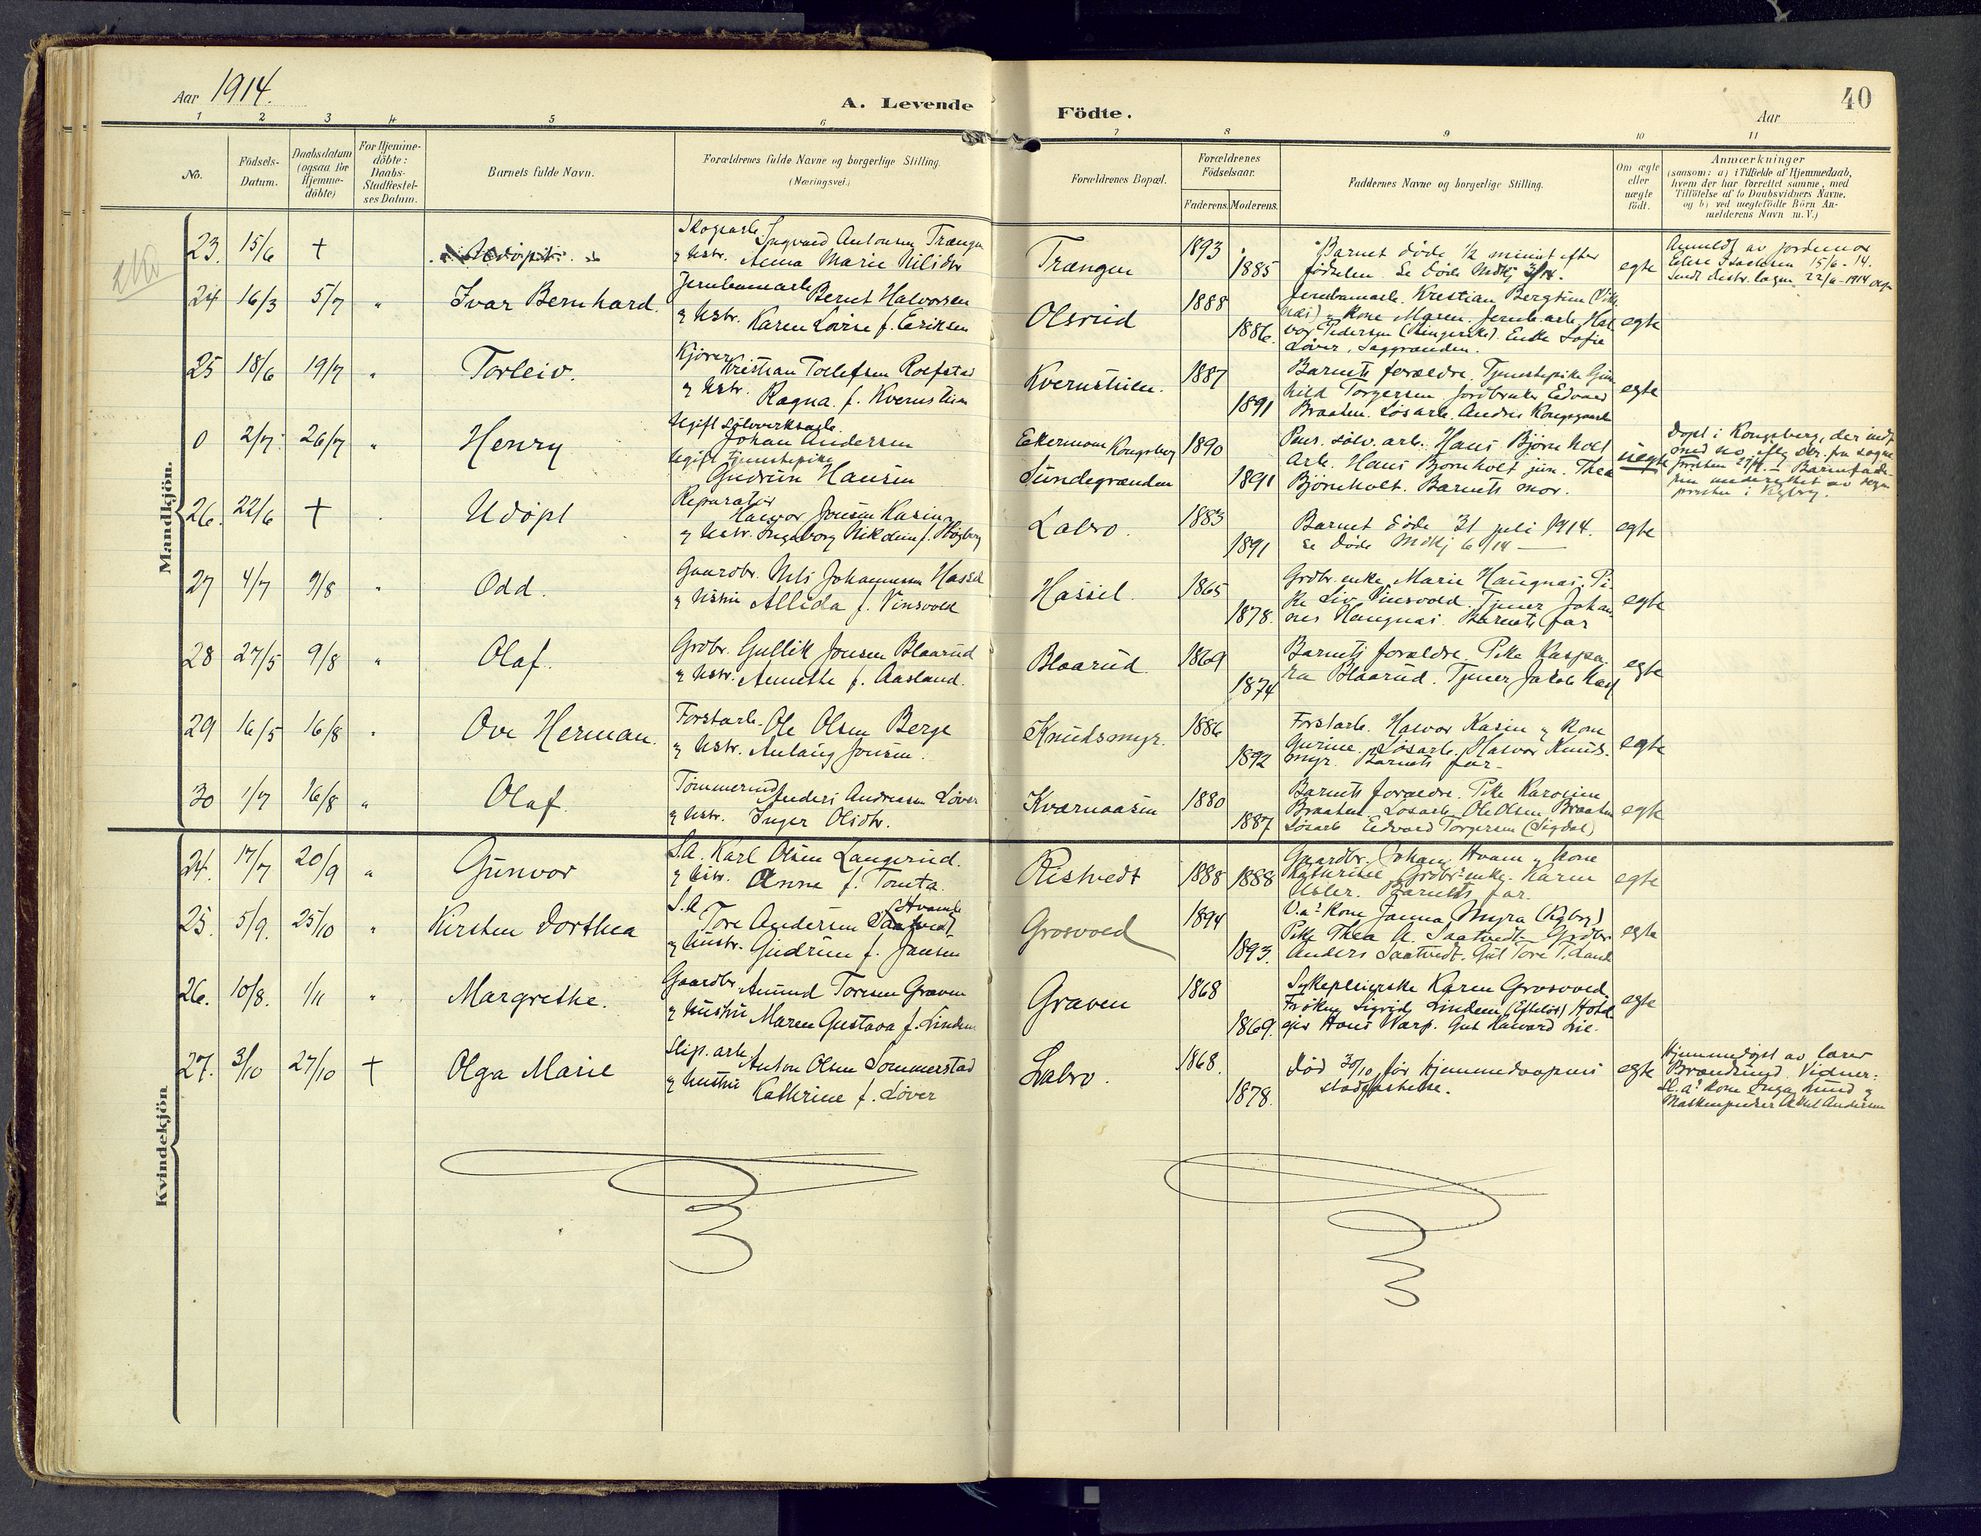 Aar 1914.
A. Levende Födte.
Aar
40
1 2 3 4 5 6 7 8 9 10 11
No.
Födsels-
Datum.
Daabsdatum
(ogsaa for
Hjemme-
döbte)
For Hjemme-
döbte:
Daabs-
Stadfæstel-
ses Datum.
Barnets fulde Navn.
Forældrenes fulde Navne og borgerlige Stilling.
(Næringsvei.)
Forældrenes Bopæl.
Forældrenes
Födselsaar.
Faderens. Moderens.
Faddernes Navne og borgerlige Stilling.
Om ægte
eller
uægte
födt.
Anmærkninger
(saasom: a) i Tilfælde af Hjemmedaab,
hvem der har forrettet samme, med
Tilföielse af to Daabsvidners Navne,
og b) ved uægtefödte Börn An-
melderens Navn m. V.)
Mandkjön.
23. 15/6 + Udöpt
Skogsarb. Ingvald Antonsen Trængen
og hstr. Anna Marie Nilsdtr
Trængen 1893 1885
Barnet døde 1/2 minut efter
fødselen. Se døde Mdkj 3/14.
egte
Anmeldt av jordemor
15/6-14.
22/6-1914
24 16/3 5/7 " Ivar Bernhard.
Jernbanearb. Bernt Halvorsen
og hstr. Karen Lovise f. Eriksen
Olsrud 1888 1886.
Jernbanearb. Kristian Bergsun
kone Maren. Jernb.arb. Hal-
vor Pedersen (Ringerike). Enke Sofie
Løver, Saggrænden.
egte
25 18/6 19/7 " Torleiv.
Kjører Kristian Tollefsen Rolfstad
og hstr. Ragna f. Kvernstuen
Kvernstuen. 1887 1891
Barnets forældre. Tjenestepike Gun-
hild Torgersen, Jordbruker Edvard
Braaten. Løsarb. Andres Kongsgaard
egte
0 2/7. 26/7 " Henry
Ugift sølvverksarb.
Johan Andersen
Ugift tjenestepike
Gudrun Hansen
Eekermoen Kongsberg 1890
Sundegrænden 1891
Pens. sølv. arb. Hans Bjørnholt
Arb. Hans Bjørnholt jun. Thea
Bjørnholt. Barnets mor.
uegte
Døpt i Kongsberg, der indf.
26. 22/6 + Udøpt
Reparatør
Halvor Jonsen Kasin
og hstr. Ingeborg
Labro. 1883 1891
Barnet døde 31 juli 1914.
Se døde Mdkj 6/14 —
egte
27 4/7 9/8 " Odd.
Gaardbr. Nils Johannesen Hassel
og hustru Allida f. Vinsvold
Hassel. 1865 1878.
Grdbr. enke Marie Haugnæs. Pi-
ke Liv Vinsvold. Tjener Johan-
nes Haugnæs. Barnets far
egte
28 27/5 9/8 " Olaf.
Grdbr. Gullik Jonsen Blaarud
og hstr. Annethe f. Aasland.
Blaarud. 1869 1874
Barnets forældre. Pike Kaspa-
ra Blaarud. Tjener Jakob
egte
29 16/5 16/8 " Ove Herman.
Forstarb. Ole Olsen Berge
og hstr. Anlaug Jonsen.
Knudsmyr. 1886 1892
Forstarb. Halvor Kasin og kone
Gurine. Løsarb. Halvor Knuds-
myr. Barnets far.
egte
30 1/7 16/8 " Olaf.
Tømmermd Anders Andreasen Løver
og hstr. Inger Olsdtr.
Kvarnaasen 1880 1887
Barnets forældre. Pike Karoline
Braaten. Løsarb. Ole Olsen Braaten
Løsarb Edvard Torgersen (Sigdal)
egte
Kvindekjön.
24. 17/7 20/9 " Gunvor
S.A. Karl Olsen Langerud.
og hstr. Anne f. Tomta.
Ristvedt 1888 1888
Gaardbr. Johan Hvam og kone
Kathrine. Grdbr. enke Karen
Barnets far.
egte
25. 5/9. 25/10 " Kirsten Dorthea
S.A. Tore Andersen Saatvedt
og hustr. Gudrun f. Jansen
Grosvold 1894 1893.
kone Janna Myra
Pike Thea A. Saatvedt Grdbr.
Anders Saatvedt. Gut Tore T.
egte
26. 10/8. 1/11 " Margrethe.
Gaardbr. Amund Toresen Graven
og hustru Maren Gustava f. Lindem
Graven 1868 1869.
Sykepleierske Karen Grosvold
Frøken Sigrid Lindem (Efteløt) Hotel-
eier Hans Warp. Gut Halvard Lie.
egte
27. 3/10 27/10 + Olga Marie
Slip. arb. Anton Olsen Sommerstad
og hustru Kathrine f. Løver
Labro. 1868. 1878.
Død 30/10 før hjemmedaapens
stadfæstelse.
egte
Hjemmedøpt av lærer
Brændsrud. Vidner:
kone Inga Lund og
Maskinpudser Aksel Andersen